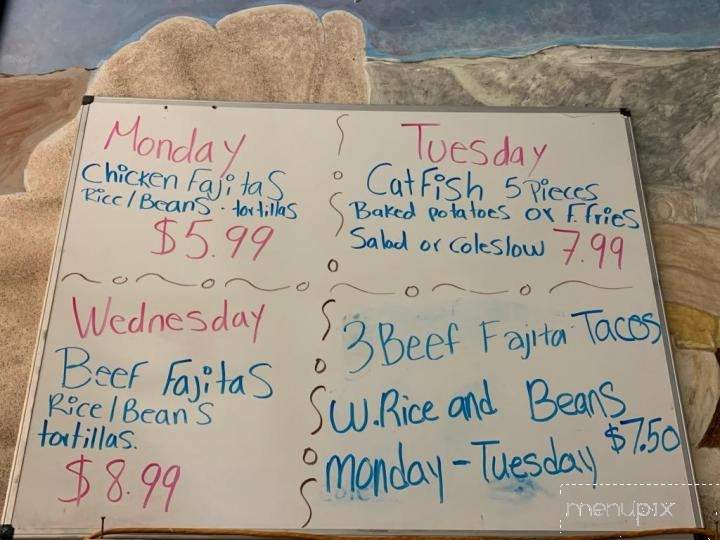 Monday
Chicken Fajitas
Rice/Beans. tortillas
$5.99
Tuesday
CatFish 5 Pieces
Baked potatoes or F.fries
Salad or coleslow 7.99
Wednesday
Beef Fajitas
Rice/Beans
tortillas.
$8.99
3 Beef Fajita Tacos
W.Rice and Beans
$7.50
monday-Tuesday
menupix